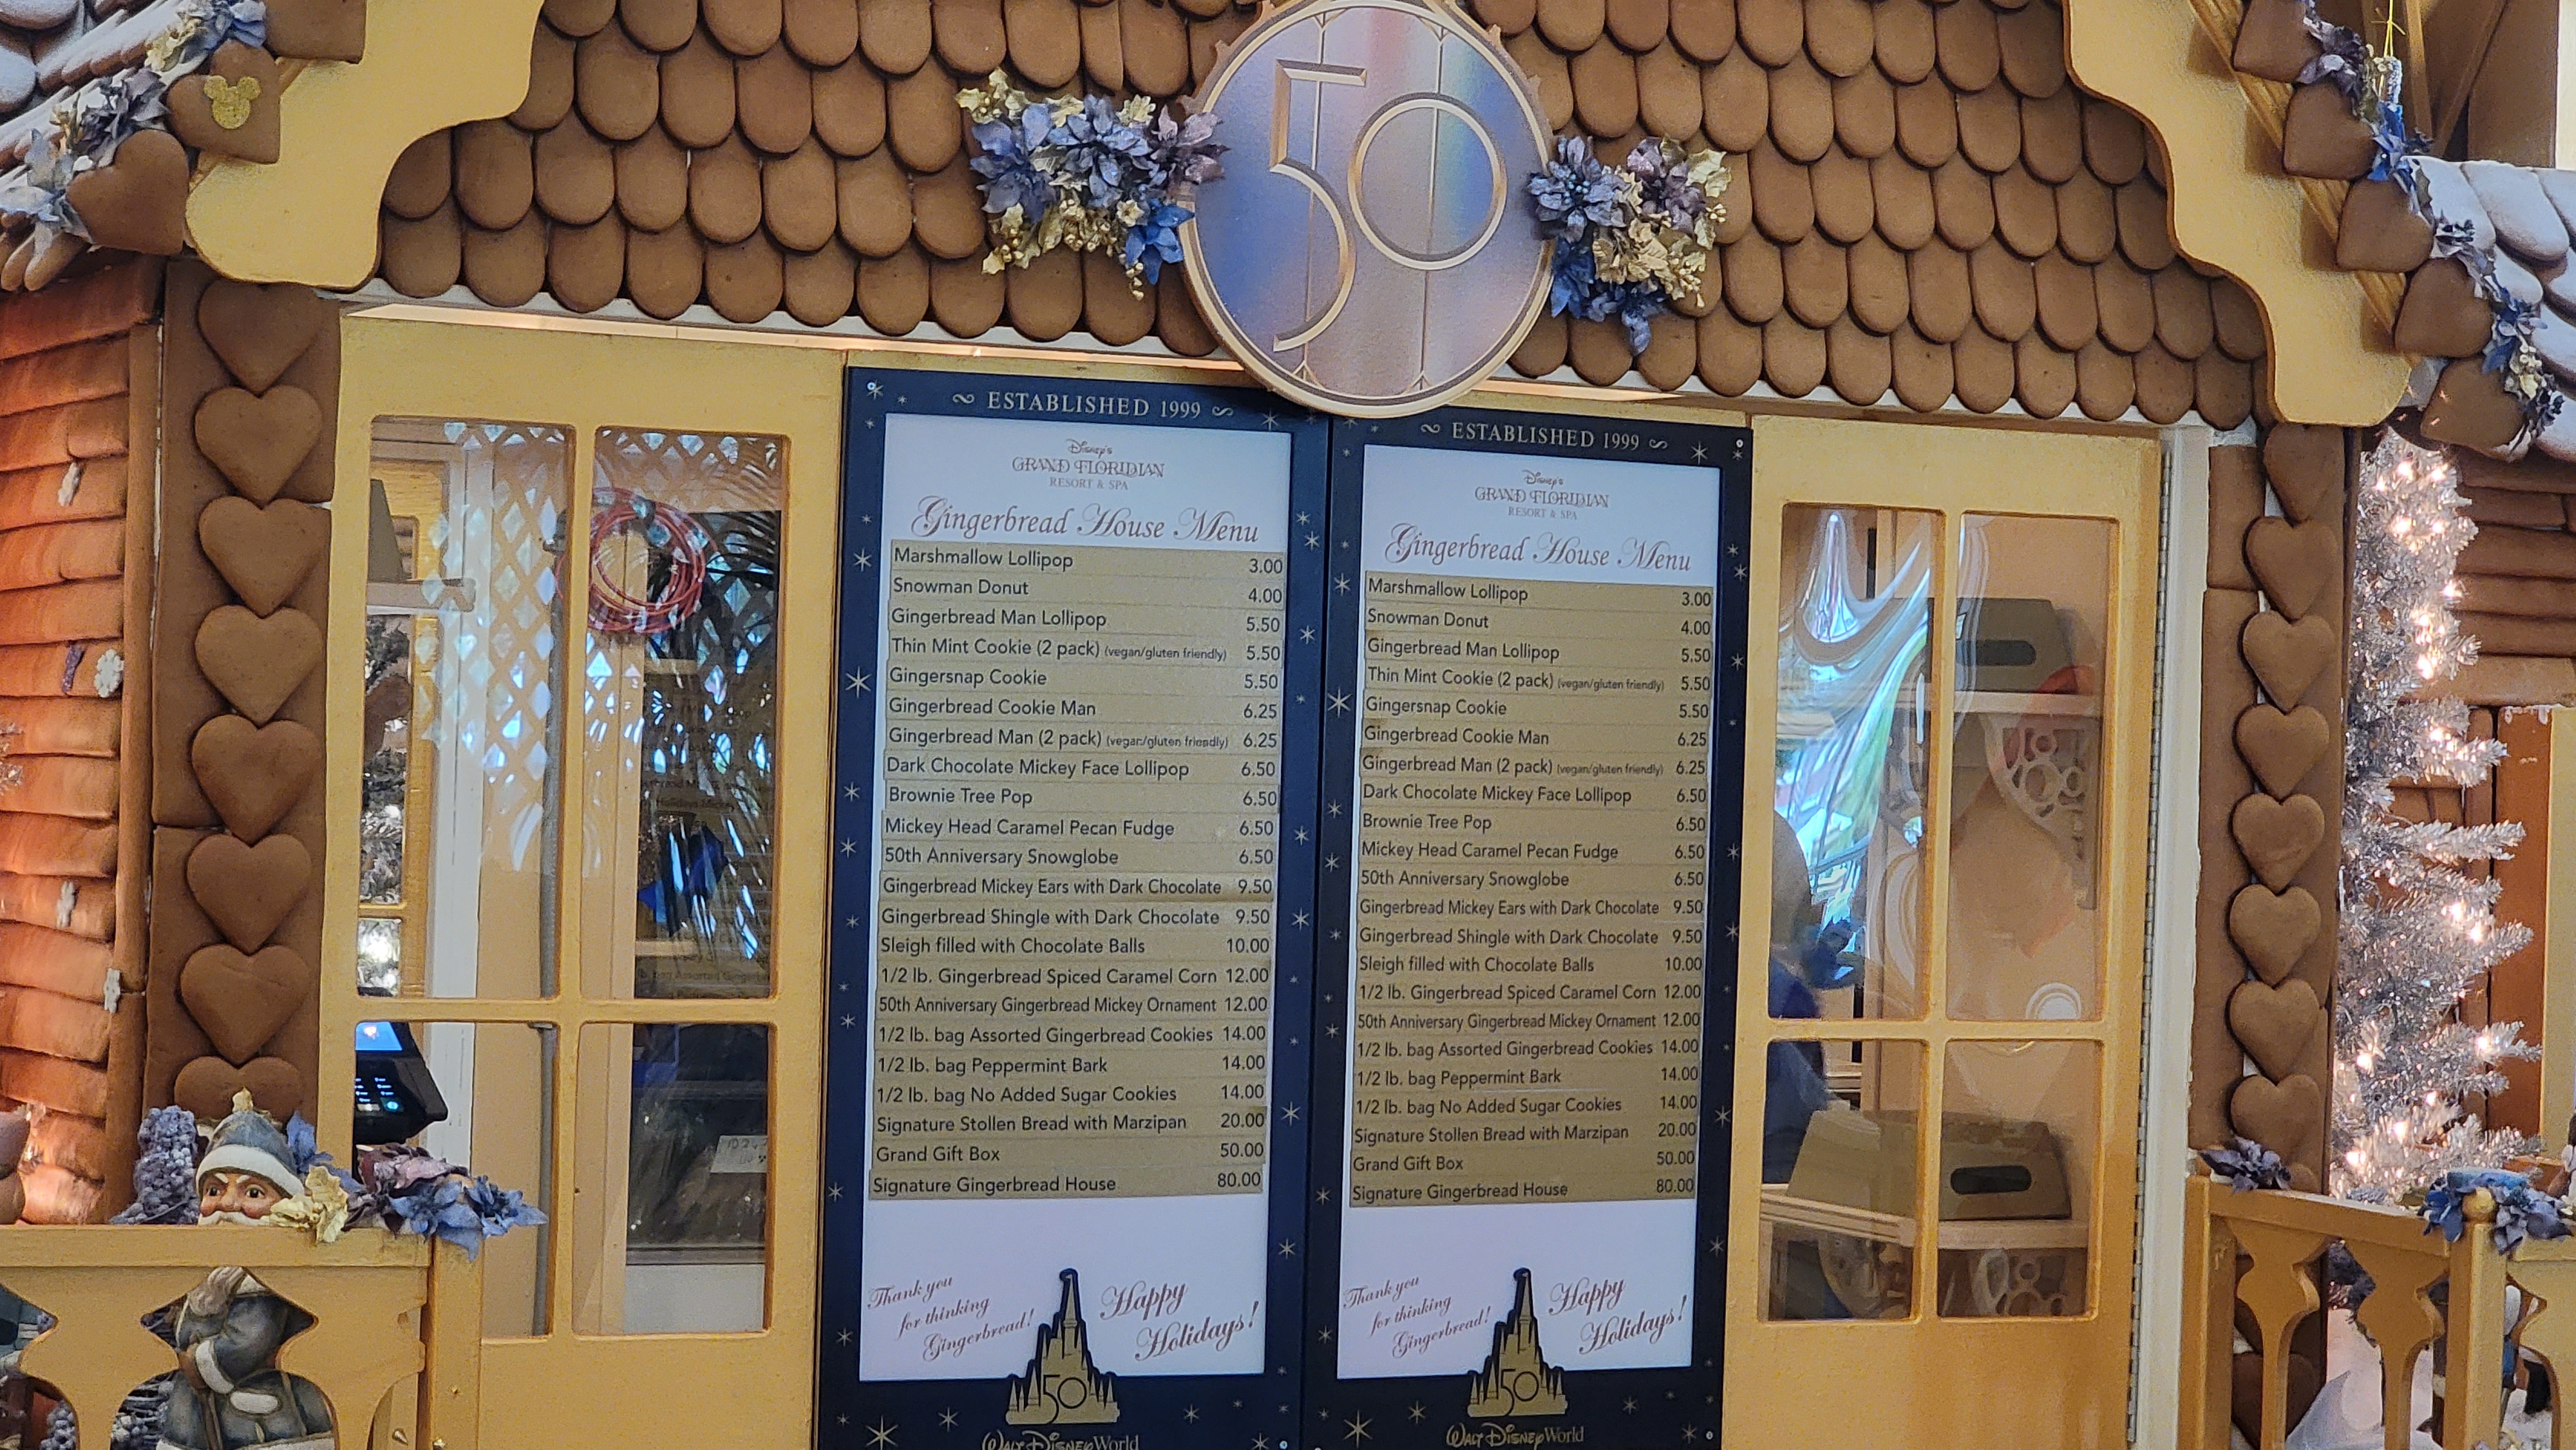 50
~ ESTABLISHED 1999 ~
Disney's
GRAND FLORIDIAN
RESORT & SPA
Gingerbread House Menu
Marshmallow Lollipop 3.00
Snowman Donut 4.00
Gingerbread Man Lollipop 5.50
Thin Mint Cookie (2 pack) (vegan/gluten friendly) 5.50
Gingersnap Cookie 5.50
Gingerbread Cookie Man 6.25
Gingerbread Man (2 pack) (vegan/gluten friendly) 6.25
Dark Chocolate Mickey Face Lollipop 6.50
Brownie Tree Pop 6.50
Mickey Head Caramel Pecan Fudge 6.50
50th Anniversary Snowglobe 6.50
Gingerbread Mickey Ears with Dark Chocolate 9.50
Gingerbread Shingle with Dark Chocolate 9.50
Sleigh filled with Chocolate Balls 10.00
1/2 lb. Gingerbread Spiced Caramel Corn 12.00
50th Anniversary Gingerbread Mickey Ornament 12.00
1/2 lb. bag Assorted Gingerbread Cookies 14.00
1/2 lb. bag Peppermint Bark 14.00
1/2 lb. bag No Added Sugar Cookies 14.00
Signature Stollen Bread with Marzipan 20.00
Grand Gift Box 50.00
Signature Gingerbread House 80.00
Thank you
for thinking
Gingerbread!
Happy
Holidays!
50
Walt Disney World
~ ESTABLISHED 1999 ~
Disney's
GRAND FLORIDIAN
RESORT & SPA
Gingerbread House Menu
Marshmallow Lollipop 3.00
Snowman Donut 4.00
Gingerbread Man Lollipop 5.50
Thin Mint Cookie (2 pack) (vegan/gluten friendly) 5.50
Gingersnap Cookie 5.50
Gingerbread Cookie Man 6.25
Gingerbread Man (2 pack) (vegan/gluten friendly) 6.25
Dark Chocolate Mickey Face Lollipop 6.50
Brownie Tree Pop 6.50
Mickey Head Caramel Pecan Fudge 6.50
50th Anniversary Snowglobe 6.50
Gingerbread Mickey Ears with Dark Chocolate 9.50
Gingerbread Shingle with Dark Chocolate 9.50
Sleigh filled with Chocolate Balls 10.00
1/2 lb. Gingerbread Spiced Caramel Corn 12.00
50th Anniversary Gingerbread Mickey Ornament 12.00
1/2 lb. bag Assorted Gingerbread Cookies 14.00
1/2 lb. bag Peppermint Bark 14.00
1/2 lb. bag No Added Sugar Cookies 14.00
Signature Stollen Bread with Marzipan 20.00
Grand Gift Box 50.00
Signature Gingerbread House 80.00
Thank you
for thinking
Gingerbread!
Happy
Holidays!
50
Walt Disney World